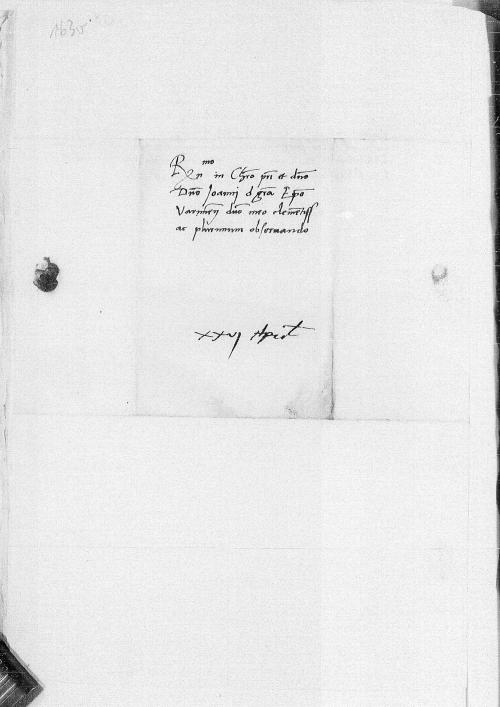 1635
R mo
in Chro pri et dno
Dno Joanni d gra Epo
Varmien dno meo clementiss
ac plurimum obseruando
xxvj